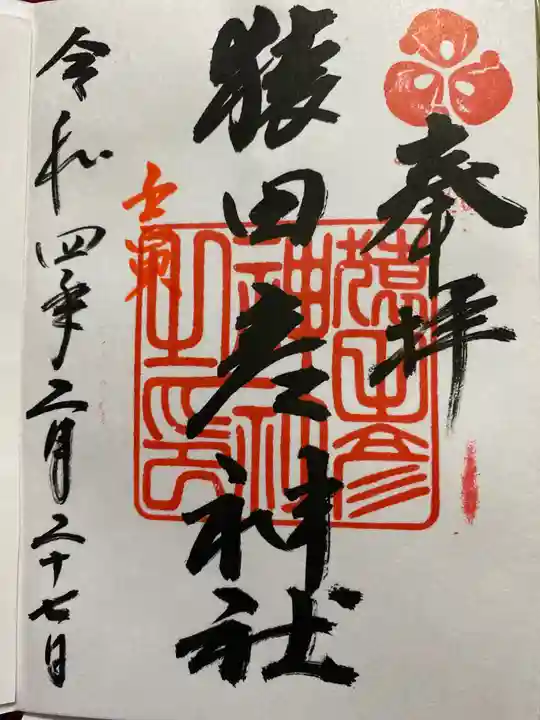 奉拝
猿田彦神社
猿田彦
神社
之印
令和四年二月二十七日